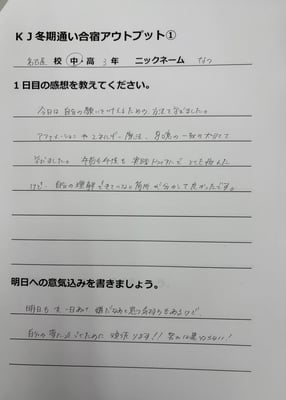 KJ冬期通い合宿アウトプット①
名古屋 校 中・高 3年 ニックネーム なつ
1日目の感想を教えてください。
今日は自分の願いを叶えるための方法を学びました。
アファメーションやエネルギー療法、言葉の一致が大切だと
学びました。午前も午後も実践トライアルで とても疲れた
けど 自分の理解できていない箇所が分かって良かったです。
明日への意気込みを書きましょう。
明日も 一日あって嫌だなあと思う気持ちもあるけど、
自分の夢に近づくために 頑張ります!!